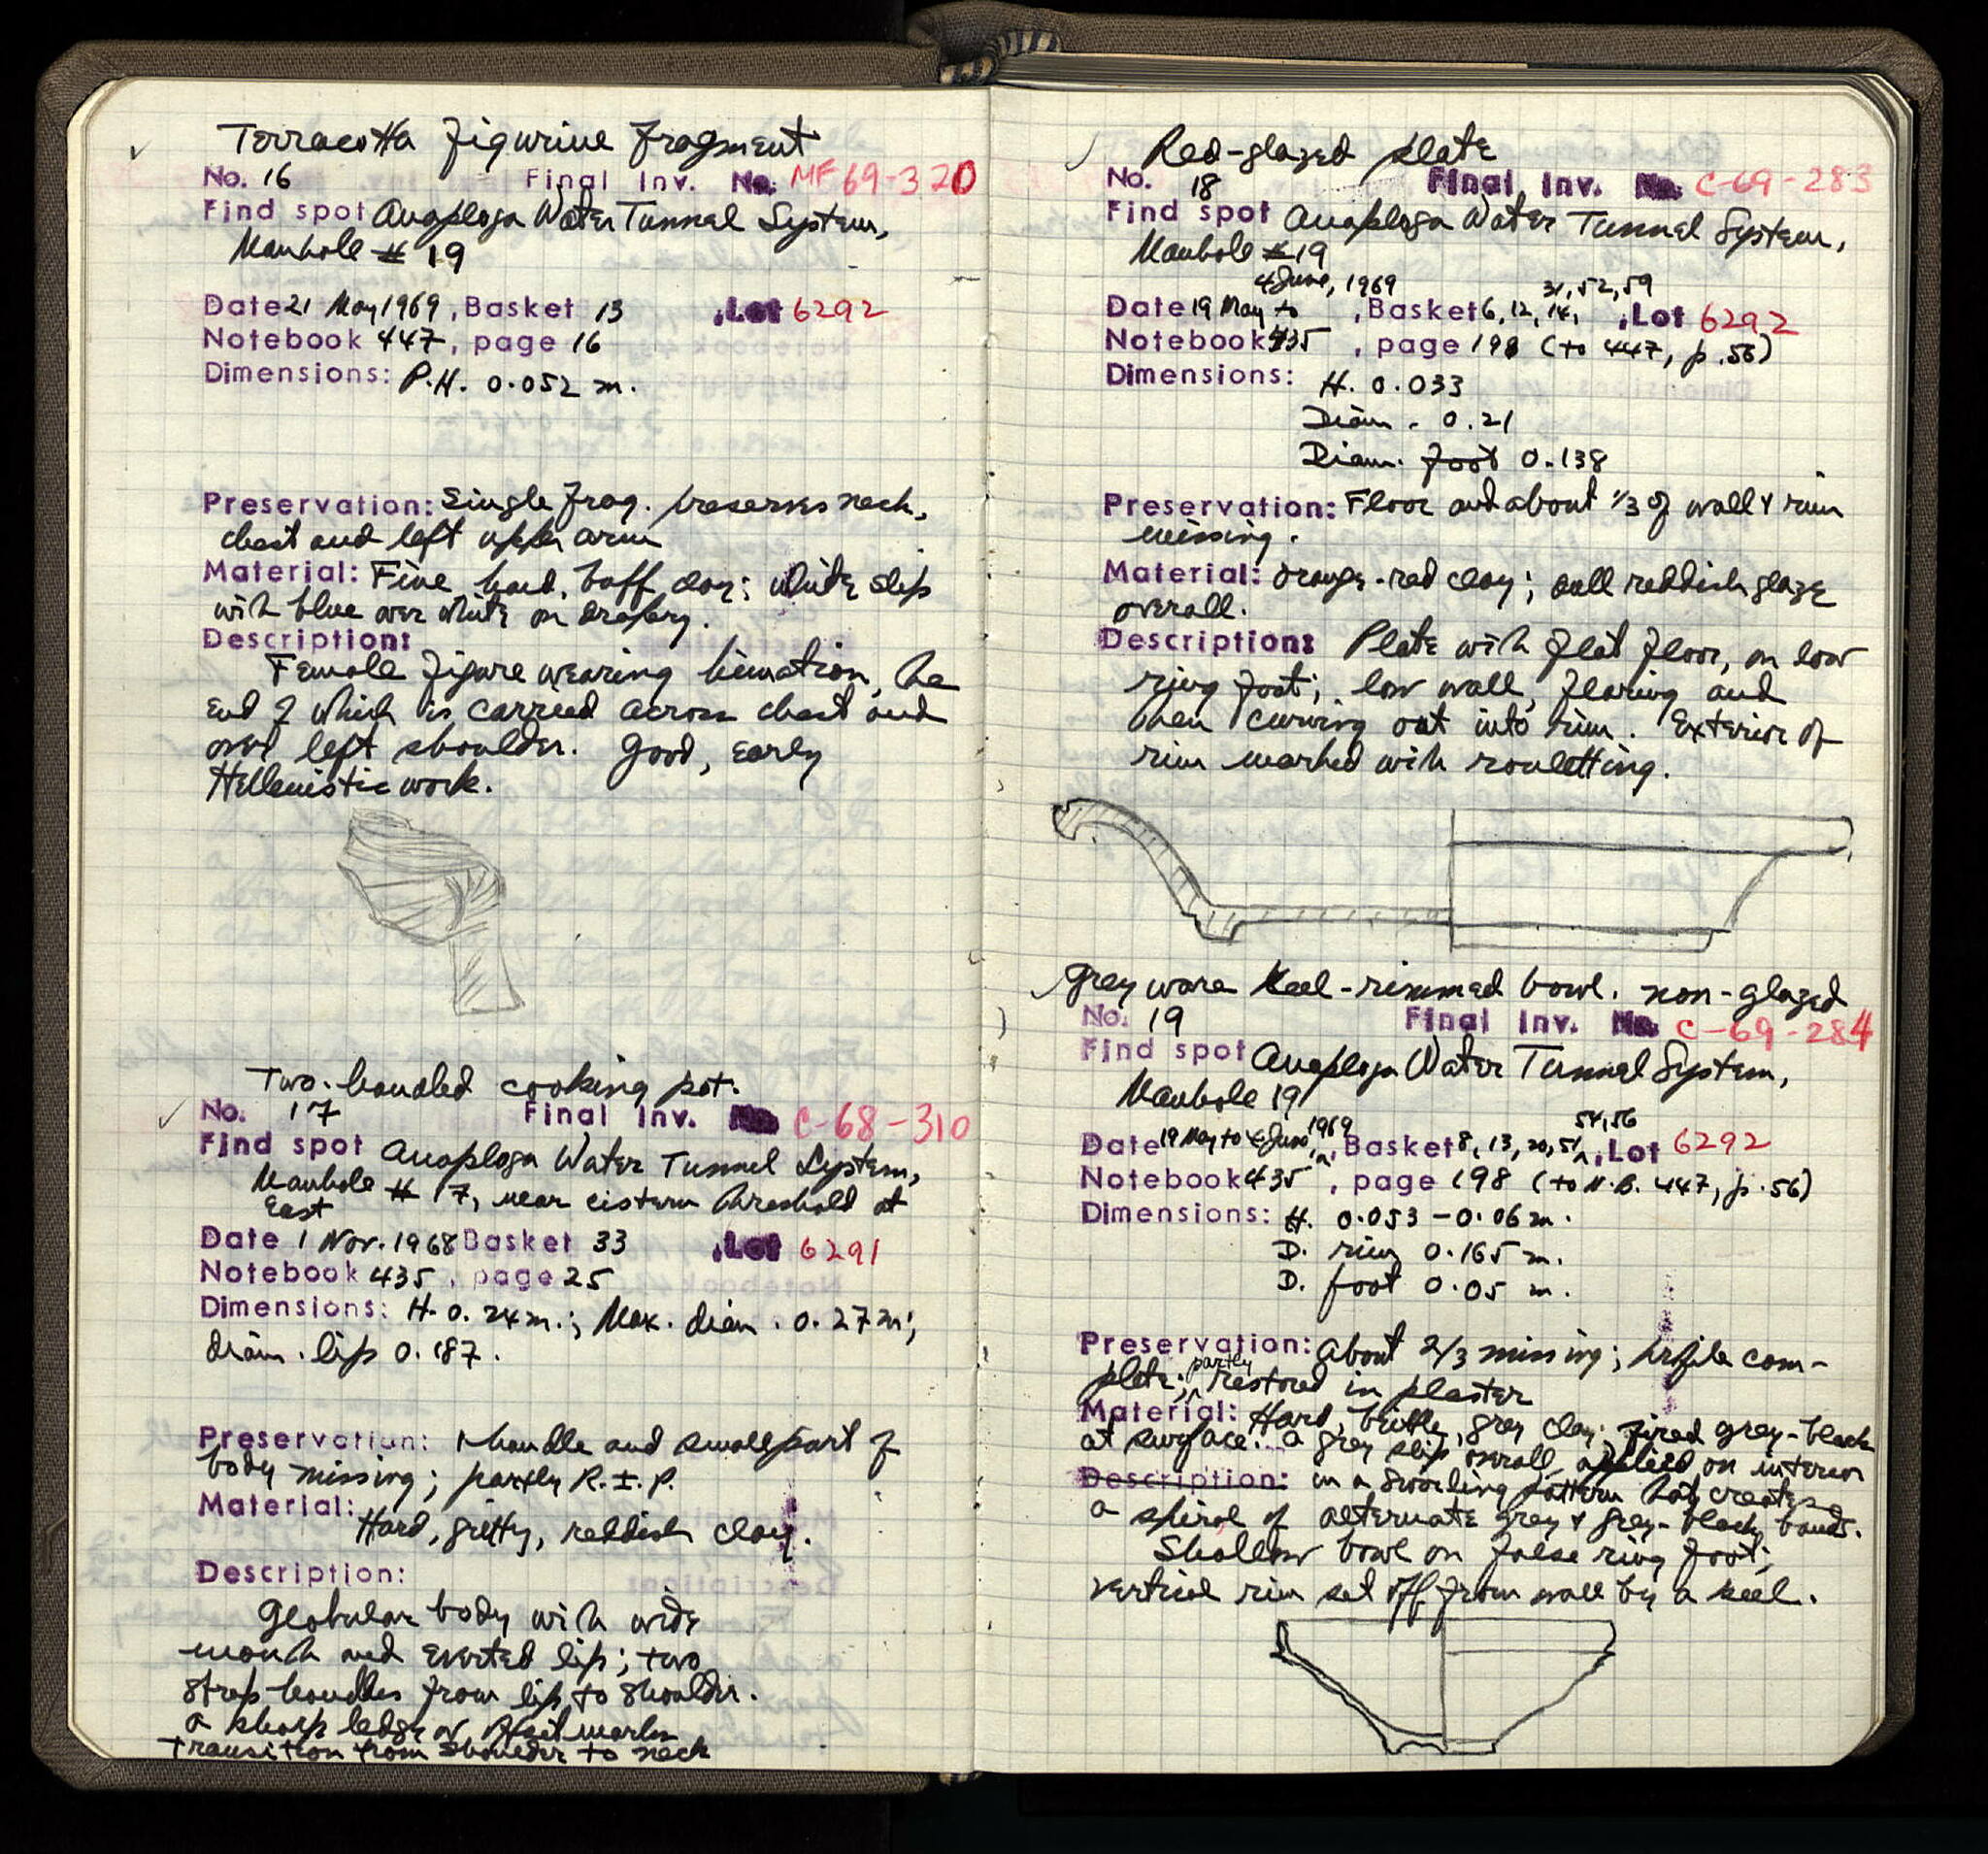 Terracotta figurine fragment
No. 16 Final Inv. No. MF 69-320
Find spot Anaploga Water Tunnel System,
Manhole # 19
Date 21 May 1969, Basket 13, Lot 6292
Notebook 447, page 16
Dimensions: P.H. 0.052 m.
Preservation: Single frag. preserves neck,
chest and left upper arm
Material: Fine, hard, buff clay: white slip
with blue over white on drapery.
Description:
Female figure wearing himation, the
end of which is carried across chest and
over left shoulder. Good, early
Hellenistic work.
Two-handled cooking pot.
No. 17 Final Inv. No. C-68-310
Find spot Anaploga Water Tunnel System,
Manhole # 17, near cistern threshold at
East
Date 1 Nov. 1968 Basket 33, Lot 6291
Notebook 435, page 25
Dimensions: H. 0.24 m.; Max. diam. 0.27 m;
diam. lip 0.187.
Preservation: 1 handle and small part of
body missing; partly R.I.P.
Material: Hard, gritty, reddish clay.
Description:
Globular body with wide
mouth and everted lip; two
strap handles from lip to shoulder.
a sharp ledge or offset marks
transition from shoulder to neck
Red-glazed plate
No. 18 Final Inv. No. C-69-283
Find spot Anaploga Water Tunnel System,
Manhole #19
4 June, 1969 31, 52, 59
Date 19 May to, Basket 6, 12, 14, , Lot 6292
Notebook 435, page 198 (to 447, p. 56)
Dimensions: H. 0.033
Diam. 0.21
Diam. foot 0.138
Preservation: Floor and about 1/3 of wall & rim
missing.
Material: orange-red clay; dull reddish glaze
overall.
Description: Plate with flat floor, on low
ring foot; low wall, flaring and
then curving out into rim. Exterior of
rim marked with rouletting.
Grey ware keel-rimmed bowl. non-glazed
No. 19 Final Inv. No. C-69-284
Find spot Anaploga Water Tunnel System,
Manhole 19
1969 54, 56
Date 19 May to 4 June, Basket 8, 13, 20, 51, Lot 6292
Notebook 435, page 198 (to N.B. 447, p. 56)
Dimensions: H. 0.053 - 0.06 m.
D. rim 0.165 m.
D. foot 0.05 m.
Preservation: About 2/3 missing; profile com-
plete; partly restored in plaster
Material: Hard, brittle, grey clay; fired grey-black
at surface. a grey slip overall, applied on interior
Description: in a swirling pattern that creates
a spiral of alternate grey & grey-black bands.
Shallow bowl on false ring foot;
vertical rim set off from wall by a keel.